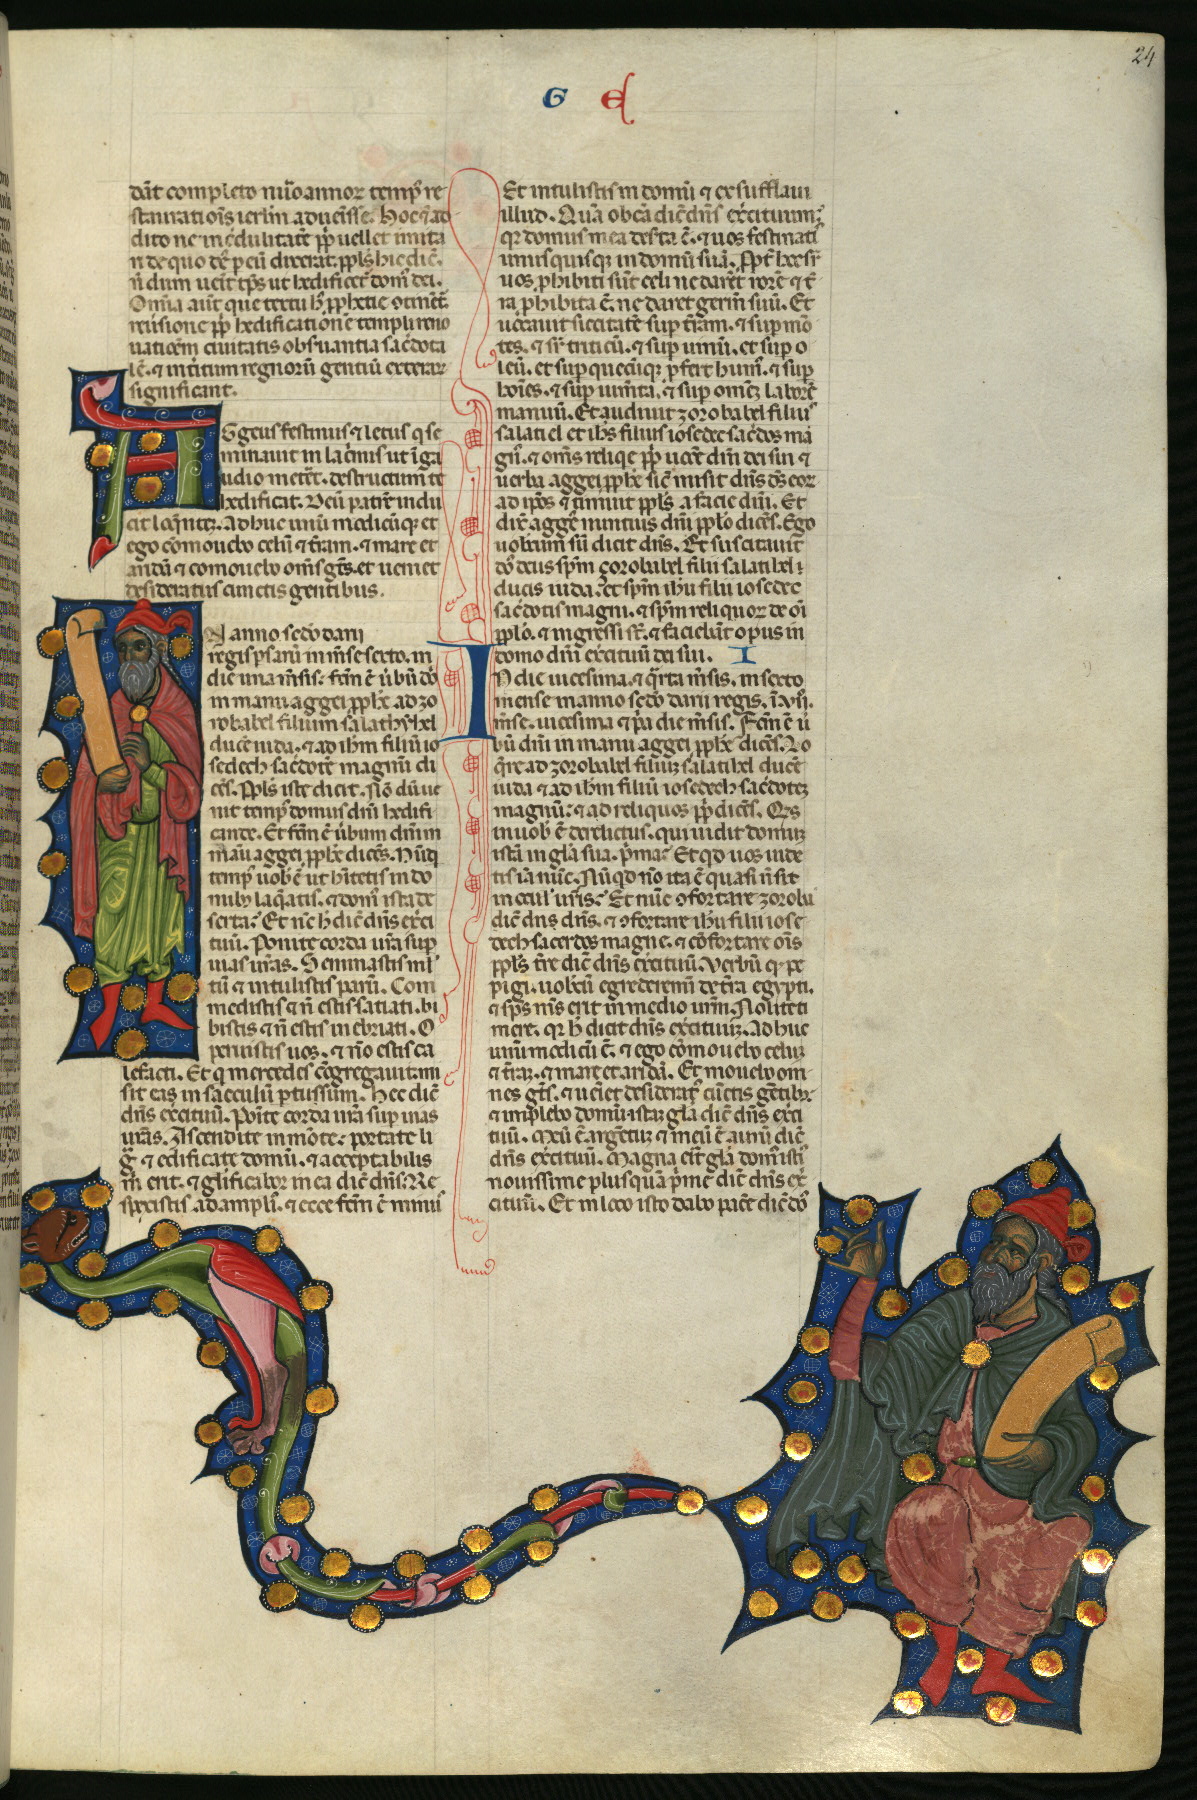 24
G E
dāt completo nūo annor temp' re
staurationis ierlm aduenisse. Hoc q̄ ad
dito ne incredulitatē pp̄ uellet imita
ri de quo dē p eū dixerat. ppl̄s hic dic̄.
n̄ dum uenit tp̄s ut hedificet' dom' dei.
Omīa aut̄ que textu h' pph̄etie otinēt'
significant.
Ggeus festinus ⁊ letus q se
minauit in lac̄mis ut ī ga
udio metet. destructum te
hedificat. Deū patrē indu
cit loq̄ntez. Adhuc unū modicūq; et
ego cōmouebo celū ⁊ t̄ram. ⁊ mare et
aridū ⁊ cōmouebo om̄s gt̄s. et ueniet
desideratus cunctis gentibus.
N anno sc̄do darii
regis psarū in mēse sexto. in
die una mēsis: fc̄m ē ūbū dō
in manu aggei pph̄e ad zo
robabel filium salathyhel
ducē iuda. ⁊ ad ih̄m filiū io
sedech sac̄dotē magnū di
cēs. Ppl̄s iste dicit. Nō dū ue
nit temp' domus dn̄i hedifi
cande. Et fc̄m ē ūbum dn̄i in
manu aggei pph̄e dicēs. Nūq̄
temp' uob' ē ut hītetis in do
mib; laq̄atis. ⁊ dom' ista de
serta? Et nc̄ h' dic̄ dn̄s exci
tuū. Ponite corda ur̄a sup
uias ur̄as. Seminastis ml'
tū ⁊ intulistis parū. Com
medistis ⁊ n̄ estis satiati. bi
bistis ⁊ n̄ estis inebriati. O
peruistis uos. ⁊ nō estis ca
lefacti. Et q mercedes cōgregauit. mi
sit eas in sacculū ptussum. Hec dic̄
dn̄s excituū. Poīte corda ur̄a sup uias
ur̄as. Ascendite in mōte: portate li
ḡ ⁊ edificate domū. ⁊ acceptabilis
m̄ erit. ⁊ glīficabor in ea dic̄ dn̄s. Re
spexistis ad ampli'. ⁊ ecce fc̄m ē minu'
Et intulistis in domū ⁊ exsufflaui
illud. Quā ob cā dic̄ dn̄s excituum?
qr domus mea deserta ē. ⁊ uos festinatī
unusquisq; in domū suā. Ppt̄ h' sr̄
uos phibiti sūt celi ne darēt rorē ⁊ t̄
ra phibita ē. ne daret germ̄ suū. Et
uocaui siccitatē sup t̄ram. ⁊ sup mō
tes. ⁊ sr̄ triticū. ⁊ sup uinū. et sup o
leū. et sup quecūq; pfert hum'. ⁊ sup
hoīes. ⁊ sup iumīta. ⁊ sup omēz laborē
manuū. Et audiuit zorobabel filiu'
salatiel et ih̄s filius iosedec sac̄dos ma
gn'. ⁊ om̄s reliqe pp̄ uocē dn̄i dei sui ⁊
uerba aggei pph̄e sic̄ misit dn̄s dš eor
ad ipōs ⁊ timuit ppl̄s a facie dn̄i. Et
dix̄ agge' nuntius dn̄i ppl̄o dicēs. Ego
uobcum sū dicit dn̄s. Et suscitauit
dn̄s deus spm̄ çorobabel filii salatihel
ducis iuda. et spm̄ ih̄u filii iosedec
sac̄dotis magni. ⁊ spm̄ reliquor de oī
ppl̄o. ⁊ ingressi sr̄. ⁊ faciebāt opus in
domo dn̄i excituū dei sui. I
N die uicesima. ⁊ q̄rta mēsis. in sexto
mense in anno sc̄do darii regis. ī a vıı.
mēse. uicesima ⁊ p̄a die mēsis. Fc̄m ē ū
bū dn̄i in manu aggei pph̄e dicēs. Lo
q̄re ad zorobabel filiuz salatihel ducē
iuda ⁊ ad ih̄m filiū iosedech sac̄dotez
magnū: ⁊ ad reliquos pp̄ dicēs. Qis
in uob' ē derelictus. qui uidit domuz
istā in glā sua p̄ma? Et qd uos uide
tis īā nūc. Nūqd nō ita ē quasi n̄ sit
in ocul' ur̄is? Et nūc ꝯfortare zoroba
dic̄ dn̄s dn̄s. ⁊ ꝯfortare ih̄u filii iose
dech sacerdos magne. ⁊ cōfortare oīs
ppl̄s tr̄e dic̄ dn̄s excituū. Verbū q pe
pigi uobcū egrederemī de t̄ra egypti.
⁊ sps̄ m̄s erit in medio ur̄m. Nolite ti
mere. qr h' dicit dn̄s excituuz. Adhuc
unū modicū ē. ⁊ ego cōmouebo celuz
⁊ t̄raz. ⁊ mare et aridā. Et mouebo om
nes gt̄s. ⁊ uēiet desiderat' cūctis gētib;
⁊ implebo domū istaz glā dic̄ dn̄s exci
tuū. Meū ē argētuz ⁊ meū ē aurū dic̄
dn̄s excituū. Magna erit glā dom' isti'
nouissime plusquā p̄me dic̄ dn̄s ex
cituū. Et in loco isto dabo pacē dic̄ dn̄s